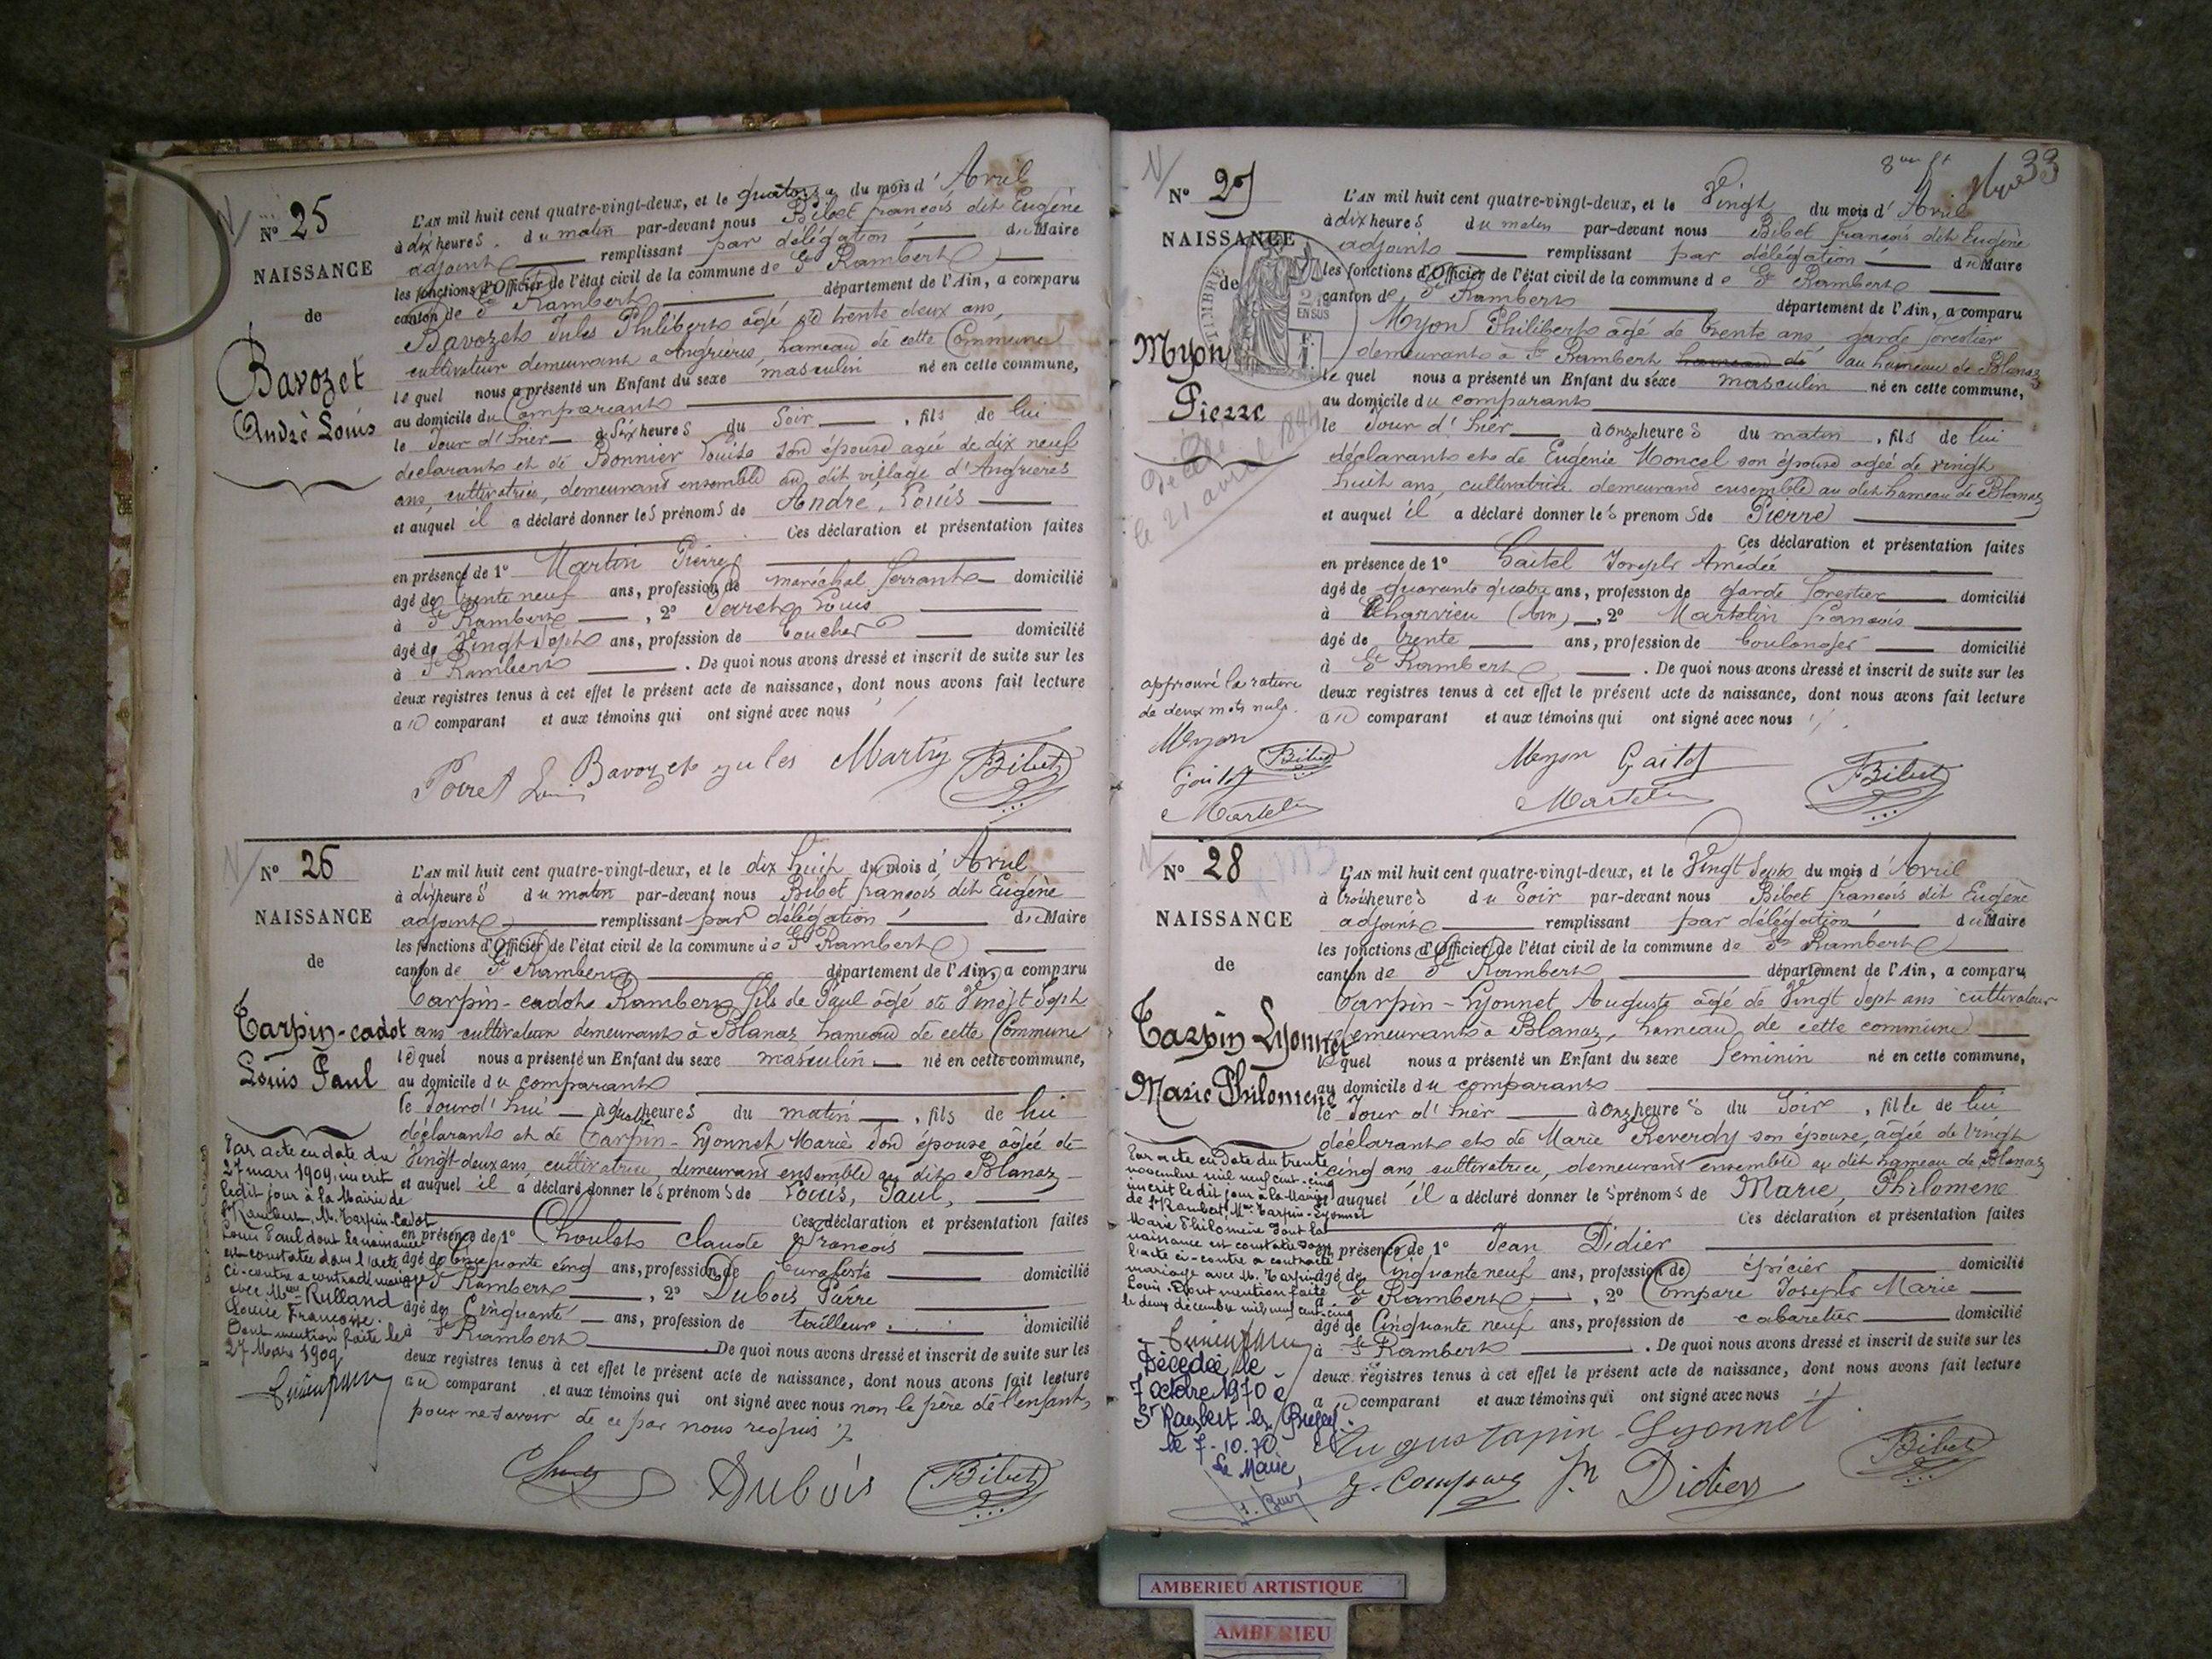 N° 25
NAISSANCE
de
Bavozet
André Louis
L'AN mil huit cent quatre-vingt-deux, et le quatorze du mois d'Avril
à dix heures du matin par-devant nous Bibet françois dit Eugène
adjoint remplissant par délégation du Maire
les fonctions d'Officier de l'état civil de la commune de St Rambert
canton de St Rambert département de l'Ain, a comparu
Bavozet Jules Philibert âgé de trente deux ans,
cultivateur demeurant à Angrières, hameau de cette Commune
lequel nous a présenté un Enfant du sexe masculin né en cette commune,
au domicile du Comparant
le Jour d'hier à Six heures du Soir, fils de lui
déclarant et de Bonnier Louise son épouse agée de dix neuf
ans, cultivatrice, demeurant ensemble au dit village d'Angrières
et auquel il a déclaré donner les prénoms de André, Louis
Ces déclaration et présentation faites
en présence de 1° Martin Pierre
âgé de trente neuf ans, profession de maréchal ferrant domicilié
à St Rambert, 2° Perret Louis
âgé de Vingt Sept ans, profession de domicilié
à St Rambert. De quoi nous avons dressé et inscrit de suite sur les
deux registres tenus à cet effet le présent acte de naissance, dont nous avons fait lecture
au comparant et aux témoins qui ont signé avec nous
Perret Louis Bavozet jules Martin Bibet
N° 26
NAISSANCE
de
Tarpin-cadot
Louis Paul
L'AN mil huit cent quatre-vingt-deux, et le dix huit du mois d'Avril
à dix heures du matin par-devant nous Bibet françois dit Eugène
adjoint remplissant par délégation du Maire
les fonctions d'Officier de l'état civil de la commune de St Rambert
canton de St Rambert département de l'Ain, a comparu
Tarpin-cadot Rambert fils de Paul âgé de Vingt Sept
ans cultivateur demeurant à Blanaz hameau de cette Commune
lequel nous a présenté un Enfant du sexe masculin né en cette commune,
au domicile du comparant
le Jourd'hui à quatre heures du matin, fils de lui
déclarant et de Tarpin-Lyonnet Marie son épouse âgée de
Vingt deux ans, cultivatrice, demeurant ensemble au dit Blanaz
et auquel il a déclaré donner les prénoms de Louis, Paul,
Ces déclaration et présentation faites
en présence de 1° Choulet Claude François
âgé de Cinquante cinq ans, profession de domicilié
à St Rambert, 2° Dubois Pierre
âgé de Cinquante ans, profession de tailleur domicilié
à St Rambert De quoi nous avons dressé et inscrit de suite sur les
deux registres tenus à cet effet le présent acte de naissance, dont nous avons fait lecture
au comparant et aux témoins qui ont signé avec nous non le père de l'enfant
pour ne savoir de ce par nous requis
Dubois Bibet
Par acte en date du
27 mars 1909, inscrit
ledit jour à la Mairie de
St Rambert, M. Tarpin-Cadot
Louis Paul dont la naissance
est constatée dans l'acte
ci-contre a contracté mariage
avec Mlle Rulland
Louise Françoise.
Dont mention faite le
27 Mars 1909
33
N° 27
NAISSANCE
de
Myon
Pierre
TIMBRE
EN SUS
Décédé
le 21 avril
L'AN mil huit cent quatre-vingt-deux, et le Vingt du mois d'Avril
à dix heures du matin par-devant nous Bibet françois dit Eugène
adjoint remplissant par délégation du Maire
les fonctions d'Officier de l'état civil de la commune de St Rambert
canton de St Rambert département de l'Ain, a comparu
Myon Philibert âgé de trente ans, garde forestier
demeurant à St Rambert hameau de au hameau de Blanaz
lequel nous a présenté un Enfant du sexe masculin né en cette commune,
au domicile du comparant
le Jour d'hier à onze heures du matin, fils de lui
déclarant et de Eugénie Moncel son épouse agée de vingt
huit ans, cultivatrice demeurant ensemble au dit hameau de Blanaz
et auquel il a déclaré donner les prenoms de Pierre
Ces déclaration et présentation faites
en présence de 1° Gaitet Joseph Amédée
âgé de quarante quatre ans, profession de garde forestier domicilié
à Charvieu (Ain), 2° Martelin françois
âgé de trente ans, profession de boulanger domicilié
à St Rambert. De quoi nous avons dressé et inscrit de suite sur les
deux registres tenus à cet effet le présent acte de naissance, dont nous avons fait lecture
au comparant et aux témoins qui ont signé avec nous
approuvé la rature
de deux mots nuls.
Myon Bibet
Gaitet
Martelin
Myon Gaitet
Martelin Bibet
N° 28
NAISSANCE
de
Tarpin Lyonnet
Marie Philomene
L'AN mil huit cent quatre-vingt-deux, et le Vingt Sept du mois d'Avril
à trois heures du Soir par-devant nous Bibet françois dit Eugène
adjoint remplissant par délégation du Maire
les fonctions d'Officier de l'état civil de la commune de St Rambert
canton de St Rambert département de l'Ain, a comparu
Tarpin-Lyonnet Auguste âgé de Vingt Sept ans cultivateur
demeurant à Blanaz, hameau de cette commune
lequel nous a présenté un Enfant du sexe féminin né en cette commune,
au domicile du comparant
le Jour d'hier à onze heures du Soir, fille de lui
déclarant et de Marie Reverdy son épouse, âgée de Vingt
cinq ans cultivatrice, demeurant ensemble au dit hameau de Blanaz
et auquel il a déclaré donner les prénoms de Marie, Philomene
Ces déclaration et présentation faites
en présence de 1° Jean Didier
âgé de Cinquante neuf ans, profession de épicier domicilié
à St Rambert, 2° Compare Joseph Marie
âgé de Cinquante neuf ans, profession de cabaretier domicilié
à St Rambert. De quoi nous avons dressé et inscrit de suite sur les
deux registres tenus à cet effet le présent acte de naissance, dont nous avons fait lecture
au comparant et aux témoins qui ont signé avec nous
Auguste Tarpin-Lyonnet
J. Compare Jn Didier Bibet
Par acte en date du trente
novembre mil neuf cent-cinq
inscrit le dit jour à la Mairie
de St Rambert, Mlle Tarpin-Lyonnet
Marie Philomène dont la
naissance est constatée dans
l'acte ci-contre a contracté
mariage avec M. Tarpin
Louis. Dont mention faite
le deux décembre mil neuf cent-cinq
Décédée le
7 octobre 1970 à
St Rambert en Bugey.
le 7-10.70
Le Maire,
AMBERIEU ARTISTIQUE
AMBERIEU